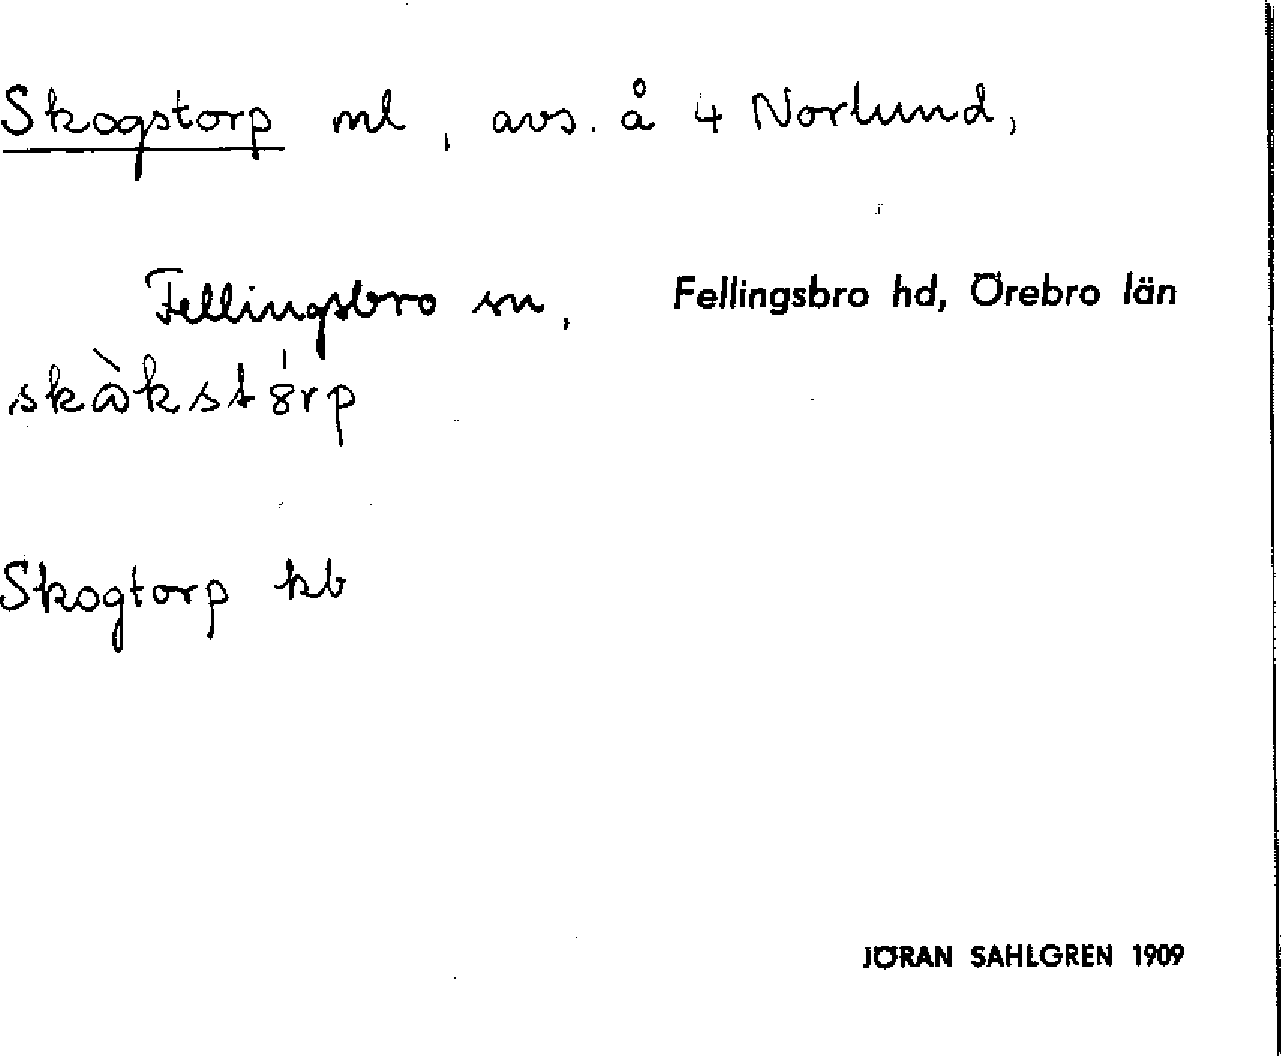 Skogstorp ml, avs. å 4 Norlund,
Fellingsbro sn, Fellingsbro hd, Örebro län
skὼkstȣ́rp
Skogtorp kb
JÖRAN SAHLGREN 1909